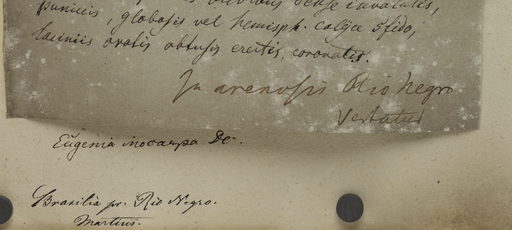 puniceis, globosis vel hemisph. calyce 5fido,
laciniis ovatis obtusis erectis, coronatis.
In arenosis Rio Negro
Eugenia inocarpa DC.
Brasilia pr. Rio Negro.
Martius.